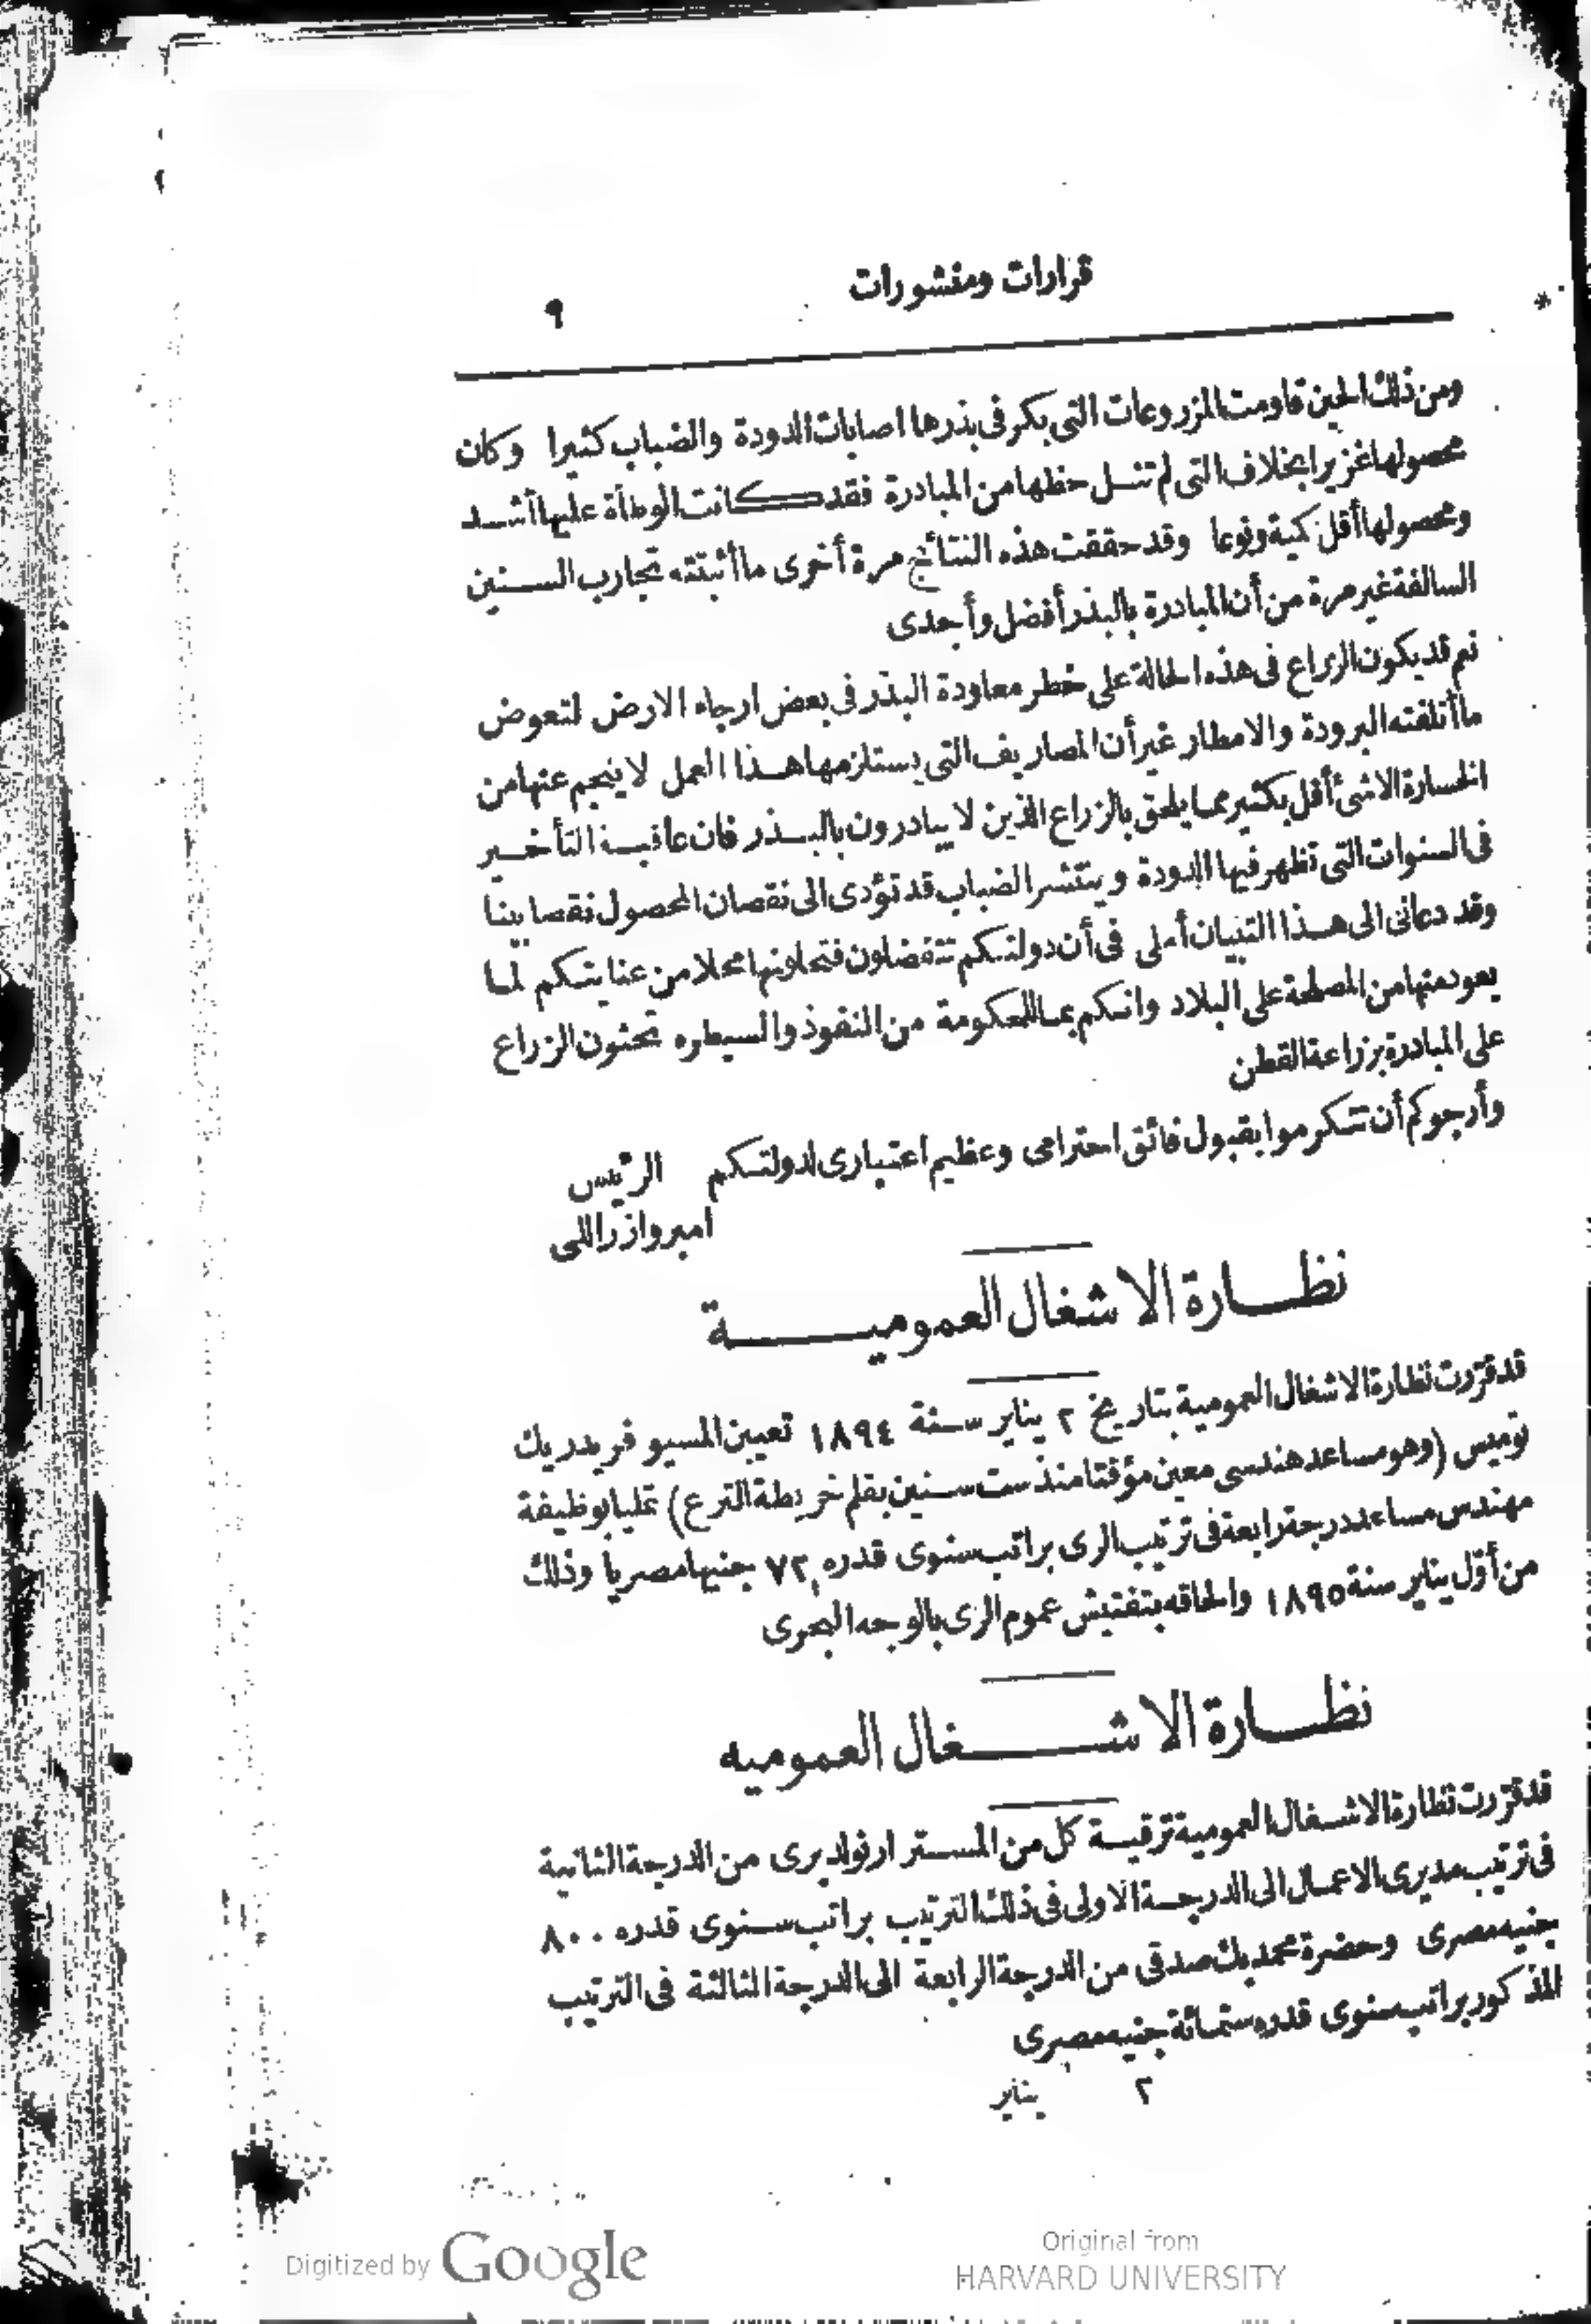 قرارات ومنشورات ٩
ومن ذلك الحين قاومت المزروعات التى بكر فى بذرها اصابات الدودة والضباب كثيرا وكان
محصولها غزيرا بخلاف التى لم تنــل حظها من المبادرة فقد كانت الوطأة عليها أشــد
ومحصولها أقل كمية ونوعا وقد حققت هذه النتائج مرة أخرى ما أثبتته تجارب الســنين
السالفة غير مرة من أن المبادرة بالبذر أفضل وأجدى
نم قد يكون الزراع فى هذه الحالة على خطر معاودة البذر فى بعض ارجاء الارض لتعوض
ما أتلفته البرودة والامطار غير أن المصاريف التى يستلزمها هــذا العمل لا ينجم عنها من
الخسارة الا شئ أقل بكثير مما يلحق بالزراع الذين لا يبادرون بالبــذر فان عاقبــة التأخــير
فى السنوات التى تظهر فيها الدودة وينتشر الضباب قد تؤدى الى نقصان المحصول نقصا بينا
وقد دعانى الى هــذا التبيان أملى فى أن دولتكم تتفضلون فتحلونها محلا من عنايتكم لما
يعود منها من المصلحة على البلاد وانكم بما للحكومة من النفوذ والسيطره تحثون الزراع
على المبادرة بزراعة القطن
وأرجوكم أن تتكرموا بقبول فائق احترامى وعظيم اعتبارى لدولتكم الرئيس
امبرواز راللى
نظــارة الاشغال العموميــــــة
قد قررت نظارة الاشغال العمومية بتاريخ ٢ يناير ســنة ١٨٩٤ تعيين المسيو فريدريك
توميس (وهو مساعد هندسى معين مؤقتا منذ ست ســنين بقلم خريطة الترع) تمليا بوظيفة
مهندس مساعد درجة رابعة فى ترتيب الرى براتب سنوى قدره ٧٢ جنيها مصريا وذلك
من أوّل يناير سنة ١٨٩٥ والحاقه بتفتيش عموم الرى بالوجه البحرى
نظــارة الاشــــغال العموميه
قد قررت نظارة الاشــغال العمومية ترقيــة كل من المســتر ارنولد برى من الدرجة الثانية
فى ترتيب مديرى الاعمــال الى الدرجــة الاولى فى ذلك الترتيب براتب ســنوى قدره ٨٠٠
جنيه مصرى وحضرة محمد بك صدقى من الدرجة الرابعة الى الدرجة الثالثة فى الترتيب
المذكور براتب سنوى قدره ستمائة جنيه مصرى
٢ يناير
Digitized by Google
Original from
HARVARD UNIVERSITY